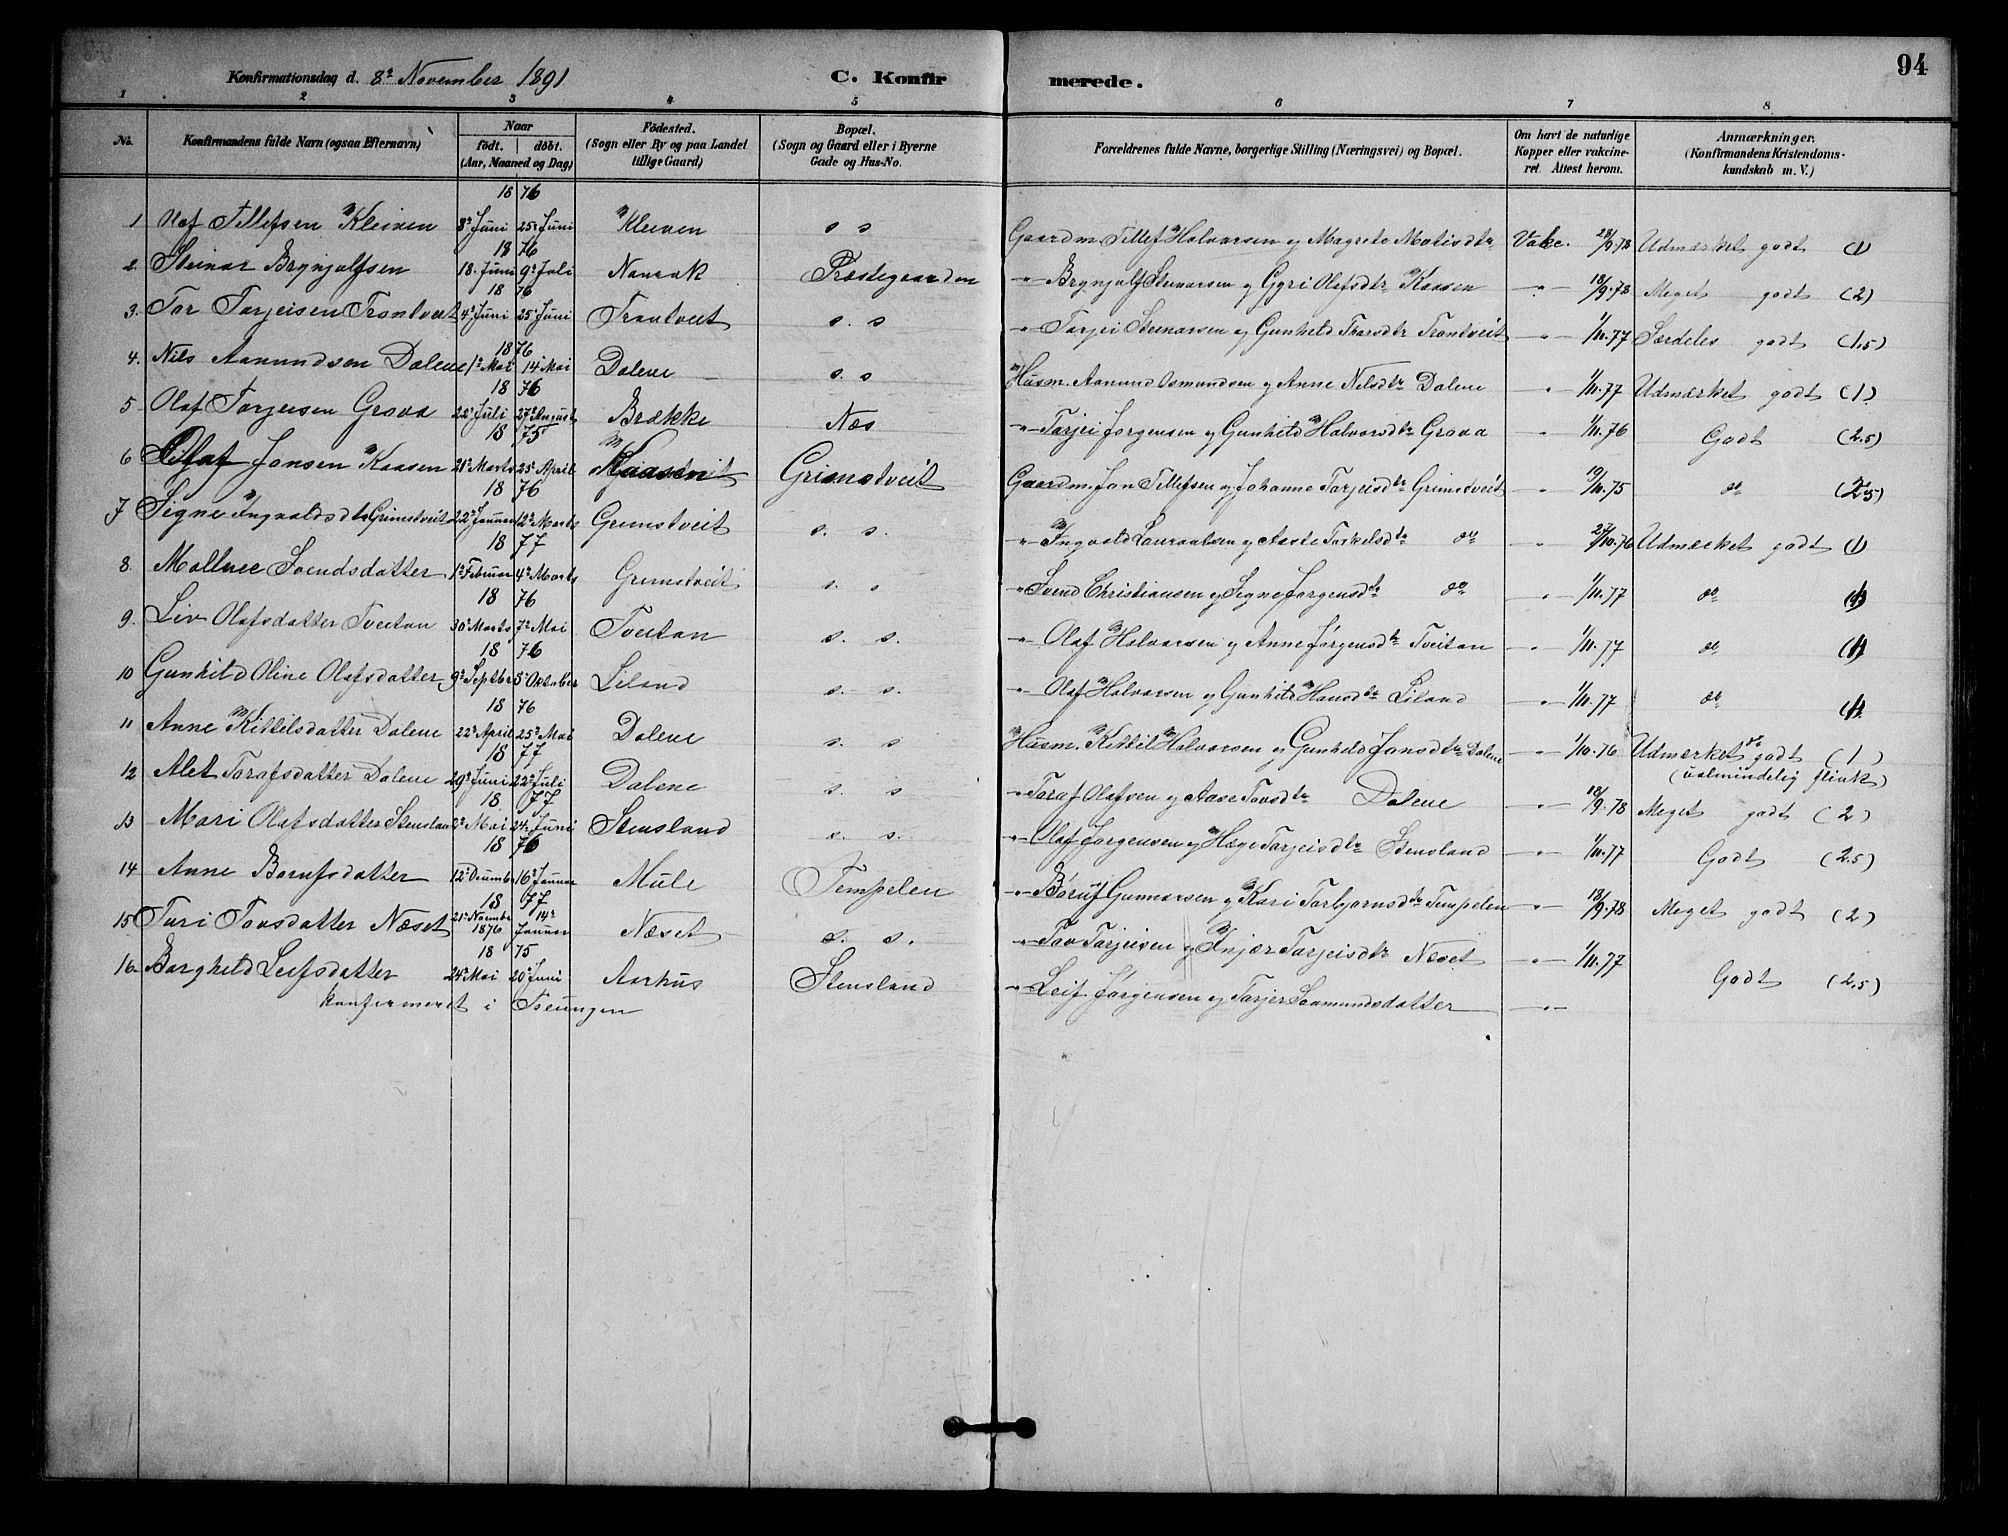 94
Konfirmationsdag d. 8de November 1891 C. Konfirmerede.
1 2 3 4 5 6 7 8
No. Konfirmandens fulde Navn (ogsaa Efternavn) Naar födt. döbt. (Aar, Maaned og Dag) Födested. (Sogn eller By og paa Landet tillige Gaard) Bopæl. (Sogn og Gaard eller i Byerne Gade og Hus-No. Forældrenes fulde Navne, borgerlige Stilling (Næringsvei) og Bopæl. Om havt de naturlige Kopper eller vakcineret. Attest herom. Anmærkninger, (Konfirmandens Kristendomskundskab m. V.)
1876
1 Olaf Tellefsen Kleiven 8de Juni 25de Juni Kleiven s s Gaardm. Tellef Halvorsen og Magrete Matisdtr Vakc. 28/9.78 Udmærket godt (1)
1876
2. Steinar Brynjulfsen 18. Juni 9de Juli Præstegaarden " Brynjulf Steinarsen og Gyri Olafsdtr Kaasen " 18/9.78 Meget godt (2)
1876
3. Tor Tarjeisen Trontveit 4de Juni 25de Juni Trontveit s. s " Tarjei Steinarsen og Gunhild Thorsdtr Trontveit " 1/11.77 Særdeles godt (1,5)
1876
4. Nils Aanundsen Dalene 1de Mai 14 Mai Dalene s. s Husm. Aanund Osmundsen og Anne Nilsdtr Dalene " 1/11.77 Udmærket godt (1)
1876
5 Olaf Tarjeisen Grova 22de Juli 27de August Brække Næs " Tarjei Jørgensen og Gunhild Halvorsdtr Grova " 1/11.76 Godt (2,5)
1875
6 Olaf Jonsen Kaasen 21de Marts 25de April Kaasen Grimstveit Gaardm. Jon Tellefsen og Johanne Tarjeisdtr Grimstveit " 19/10.75 do (2,5)
1876
7 Signe Ingvaldsdtr Grimstveit 22de Januar 12de Marts Grimstveit s. s. " Ingvald Lauraatsen og Aaste Torkelsdtr do " 27/10.76 Udmærket godt (1)
1877
8. Svendsdatter 1de Februar 4de Marts Grimstveit s. s. " Svend Christiansen og Signe Jørgensdtr do " 1/11.77 do (1)
1876
9. Liv Olafsdatter Tveitan 30de Marts 7de Mai Tveitan s. s. " Olaf Halvorsen og Anne Jørgensdtr Tveitan " 1/11.77 do (1)
1876
10 Gunhild Oline Olafsdatter 9de Septbr 5de Oktober Liland s. s. " Olaf Halvorsen og Gunhild Hansdtr Liland " 1/11.77 do (1)
1876
11 Anne Kittilsdatter Dalene 22de April 25de Mai Dalene s. s Husm. Kittil Halvorsen og Gunhild Jonsdtr Dalene " 1/10.76 Udmærket godt (1)
(ualmindelig flink)
1877
12 Alet Torafsdatter Dalene 29de Juni 22de Juli Dalene s. s " Toraf Olafsen og Aase Tovsdtr Dalene " 18/9.78 Meget godt (2)
1877
13 Mari Olafsdatter Stensland 2de Mai 24de Juni Stensland s. s. " Olaf Jørgensen og Hæge Tarjeisdtr Stensland " 1/11.77 Godt (2,5)
1876
14 Anne Borufsdatter 12de Decembr 16de Januar Mule Tempelen " Boruf Gunnarsen og Kari Torbjørnsdtr Tempelen " 18/9.78 Meget godt (2)
1877
15 Turi Tovsdatter Næset 21de Novembr 1876 14de Januar Næset s. s. " Tov Tarjeisen og Injær Tarjeisdtr Næset " 1/11.77 Godt (2,5)
1875
16 Borghild Leifsdatter 24de Mai 20de Juni Aarhus Stensland " Leif Jørgensen og Tarjer Saamundsdatter "
konfirmeret i Treungen